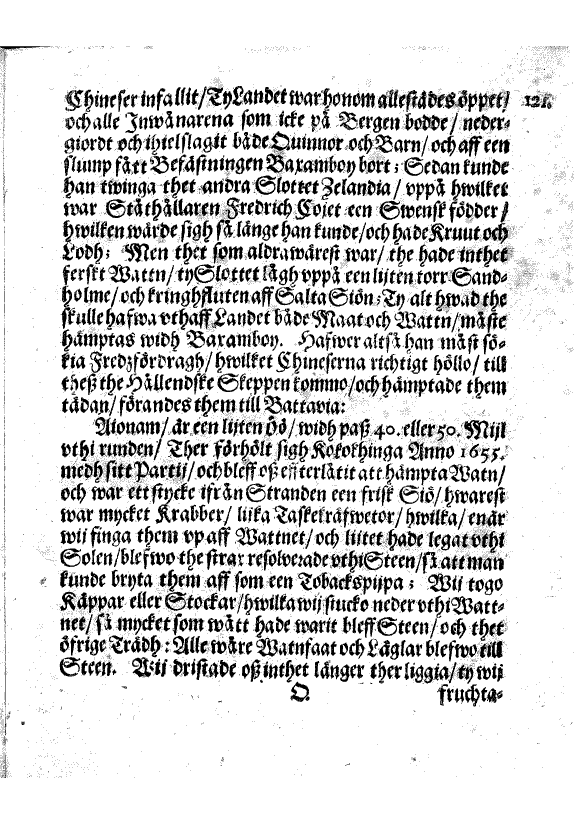 Chineser infallit/ Ty Landet war honom allestädes öppet/ 121.
och alle Inwånarena som icke på Bergen bodde/ neder-
giordt och ihielslagit både Quinnor och Barn/ och aff een
slump fått Befästningen Baxamboy bort; Sedan kunde
han twinga thet andra Slottet Zelandia/ uppå hwilket
war Ståthållaren Fredrich Cojet een Swensk födder/
hwilken wärde sigh så länge han kunde/ och hade Kruut och
Lodh; Men thet som aldrawärest war/ the hade inthet
ferskt Wattn/ ty Slottet lågh uppå een lijten torr Sand-
holme/ och kringhfluten aff Salta Siön; Ty alt hwad the
skulle hafwa uthaff Landet både Maat och Wattn/ måste
hämptas widh Baxamboy. Hafwer altså han måst sö-
kia Fredzfördragh/ hwilket Chineserna richtigt höllo/ till
theß the Hållendske Skeppen kommo/ och hämptade them
tädan/ förandes them till Battavia:
Aionam/ är een lijten Öö/ widh paß 40. eller 50. Mijl
uthi runden/ Ther förhölt sigh Kokokhinga Anno 1655.
medh sitt Partij/ och bleff oß efterlåtit att hämpta Watn/
och war ett stycke ifrån Stranden een frisk Siö/ hwarest
war mycket Krabber/ liika Taskekräfwetor/ hwilka/ enär
wij finga them up aff Wattnet/ och liitet hade legat uthi
Solen/ blefwo the strax resolverade uthi Steen/ så att man
kunde bryta them aff som een Tobackspijpa; Wij togo
Käppar eller Stockar/ hwilka wij stucko neder uthi Watt-
net/ så mycket som wått hade warit bleff Steen/ och thet
öfrige Trädh: Alle wåre Watnfaat och Läglar blefwo till
Steen. Wij dristade oß inthet länger ther liggia/ ty wij
O. fruchta-